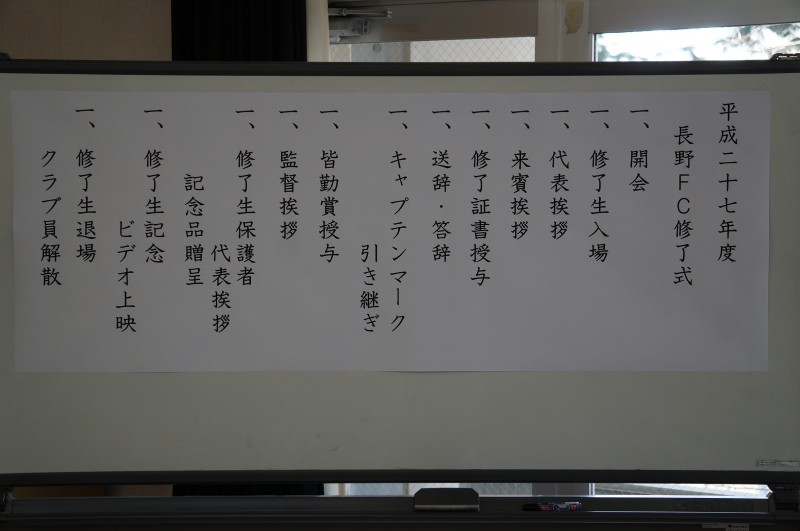 平成二十七年度
長野FC修了式
一、開会
一、修了生入場
一、代表挨拶
一、来賓挨拶
一、修了証書授与
一、送辞・答辞
一、キャプテンマーク
引き継ぎ
一、皆勤賞授与
一、監督挨拶
一、修了生保護者
代表挨拶
記念品贈呈
一、修了生記念
ビデオ上映
一、修了生退場
クラブ員解散